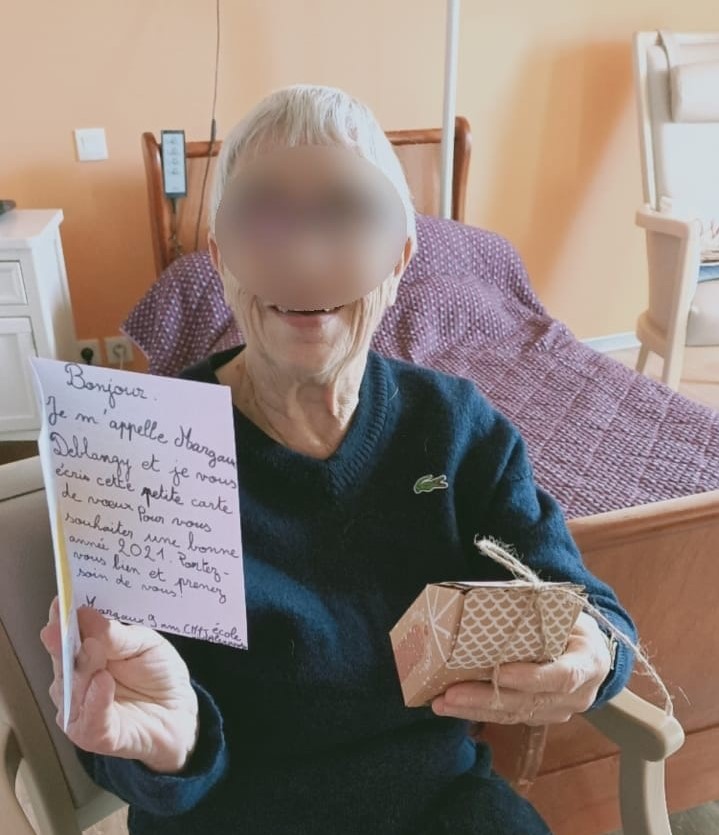 Bonjour.
Je m'appelle Margaux
Deblangy et je vous
écris cette petite carte
de vœux Pour vous
souhaiter une bonne
année 2021. Portez-
vous bien et prenez
soin de vous!
Margaux 9 ans CM1 école